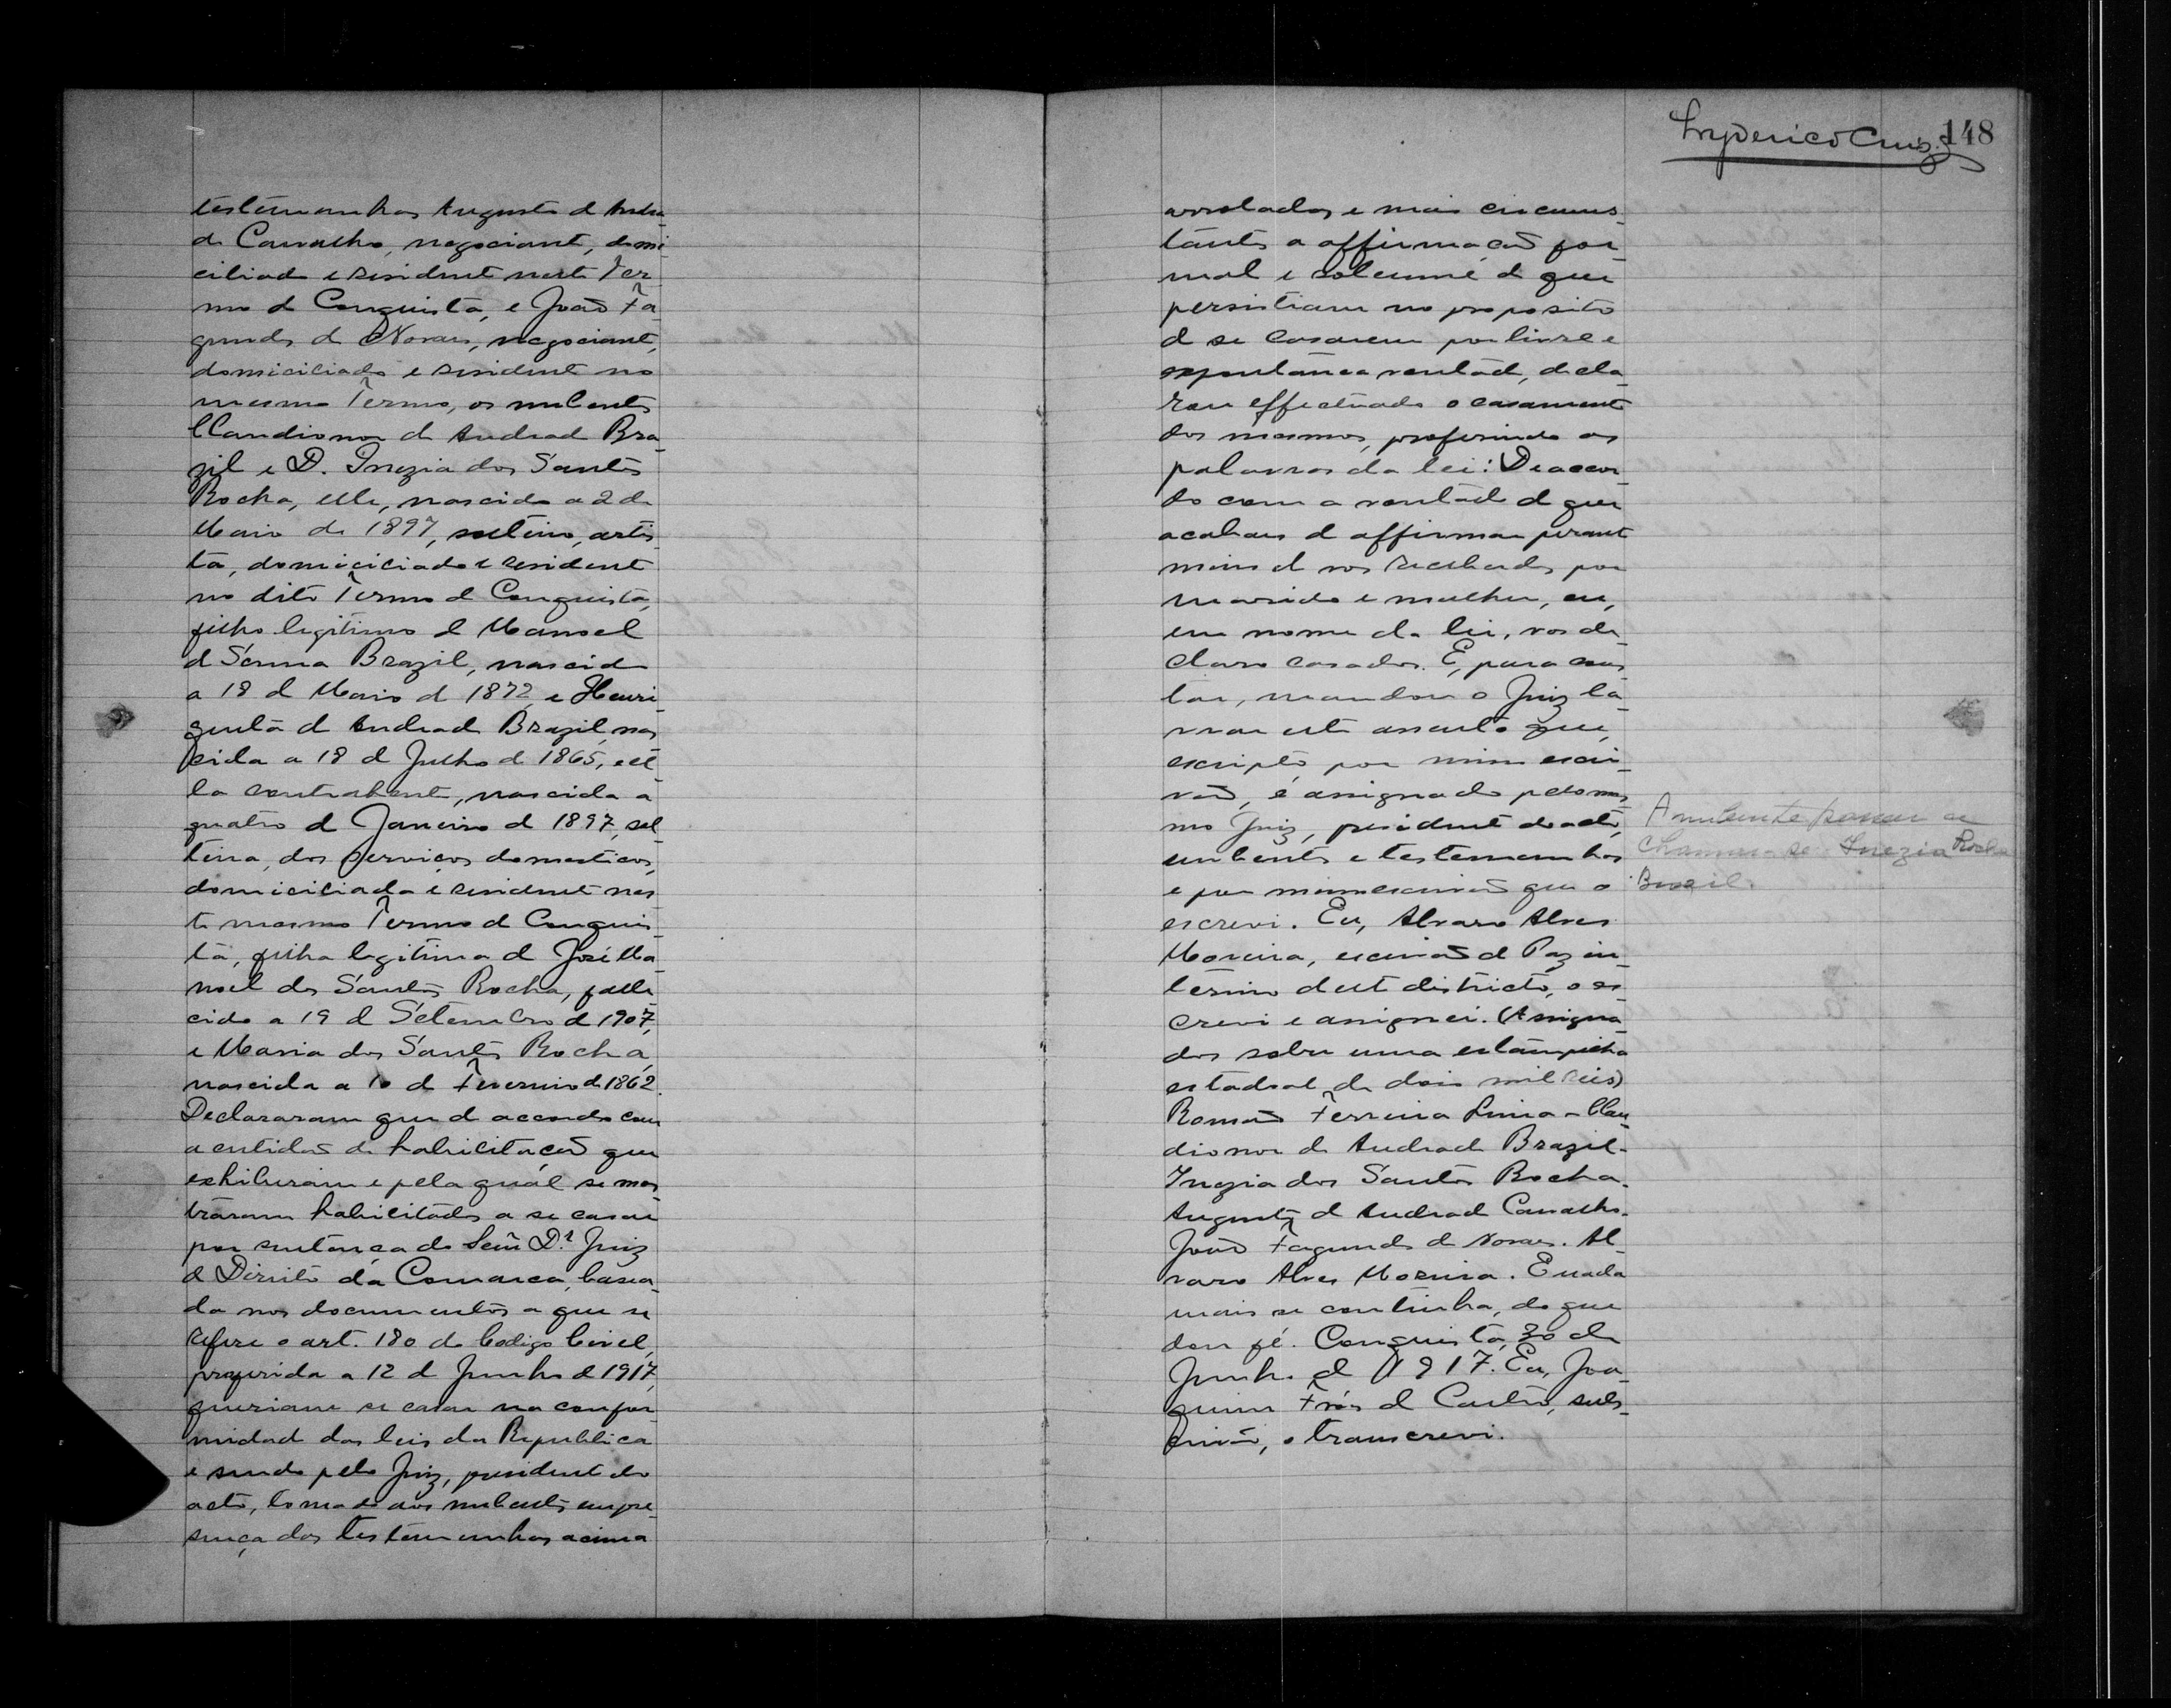 testemunhas Augusto d Andra-
de Carvalho, negociant, domi-
ciliado e resident neste Ter-
mo d Conquista, e João Fa-
gundes de Novaes, negociant,
domiciliado e resident no
mesmo Termo, os nubentes
Claudionor de Andrad Bra-
zil e D. Inezia dos Santos
Rocha, elle, nascido a 2 de
Maio de 1897, solteiro, artis-
ta, domiciliado e resident
no dito Termo d Conquista,
filho legitimo d Manoel
d Senna Brazil, nascido
a 18 d Maio d 1872 e Henri-
queta d Andrad Brazil, nas-
cida a 18 d Julho d 1865, e el-
la contrahente, nascida a
quatro d Janeiro d 1897, sol-
teira, dos serviços domesticos,
domiciliada e resident nes-
te mesmo Termo d Conquis-
ta, filha legitima d José Ma-
noel dos Santos Rocha, falle-
cido a 19 d Setembro d 1907,
e Maria dos Santos Rocha,
nascida a 10 d Fevereiro d 1862.
Declararam que d accordo com
a certidão de habilitação que
exhibiram e pela qual se mos-
traram habilitados a se casar
por sentença do Senr Dr. Juiz
d Direito da Comarca, basea-
da nos documentos a que se
refere o art. 180 do Codigo Civel,
proferida a 12 d Junho d 1917,
queriam se casar na confor-
midad das leis da Republica
e sendo pelo Juiz, president do
acto, tomado aos nubentes em pre-
sença das testemunhas acima
Lyderico Cruz. 148
arroladas e mais circums-
tantes a affirmação for-
mal e solemne de que
persistiam no proposito
d se casarem por livre e
expontanea vontad, decla-
rou effectuado o casamento
dos mesmos, proferindo as
palavras da lei: De accor-
do com a vontade d que
acabaes d affirmar perant
mim d vos receberdes por
marido e mulher, eu,
em nome da lei, vos de-
claro casados. E, para cons-
tar, mandou o Juiz la-
vrar este assento que,
escripto por mim escri-
vão, é assignado pelo mes-
mo Juiz, president do acto,
nubentes e testemunhas
e por mim escrivão que o
escrevi. Eu, Alvaro Alves
Moreira, escrivão d Paz in-
terino deste districto, o es-
crevi e assignei. (Assigna-
dos sobre uma estampilha
estadoal de dois mil reis)
Romão Ferreira Lima - Clau-
dionor de Andrade Brazil-
Inezia dos Santos Rocha.
Augusto d Andrad Carvalho.
João Fagundes de Novaes. Al-
varo Alves Moreira. E nada
mais se continha, do que
dou fé. Conquista, 30 de
Junho d 1917. Eu, Joa-
quim Fróes d Castro, sub-
, o transcrevi.
A nubente passou a
chamar-se Inezia Rocha
Brazil.